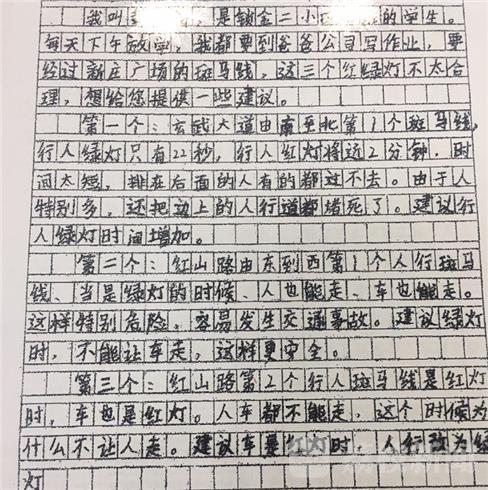 我叫，是锁金二小的学生。
每天下午放学，我都要到爸爸公司写作业，要
经过新庄广场的斑马线，这三个红绿灯不太合
理，想给您提供一些建议。
第一个：玄武大道由南至北第1个斑马线，
行人绿灯只有22秒，行人红灯将近2分钟，时
间太短，排在后面的人有的都过不去。由于人
特别多，还把边上的人行道都堵死了。建议行
人绿灯时间增加。
第二个：红山路由东到西第1个人行斑马
线、当是绿灯的时候、人也能走、车也能走。
这样特别危险，容易发生交通事故。建议绿灯
时，不能让车走，这样更安全。
第三个：红山路第2个行人斑马线是红灯
时，车也是红灯。人车都不能走，这个时候为
什么不让人走。建议车是红灯时，人行改为绿
灯